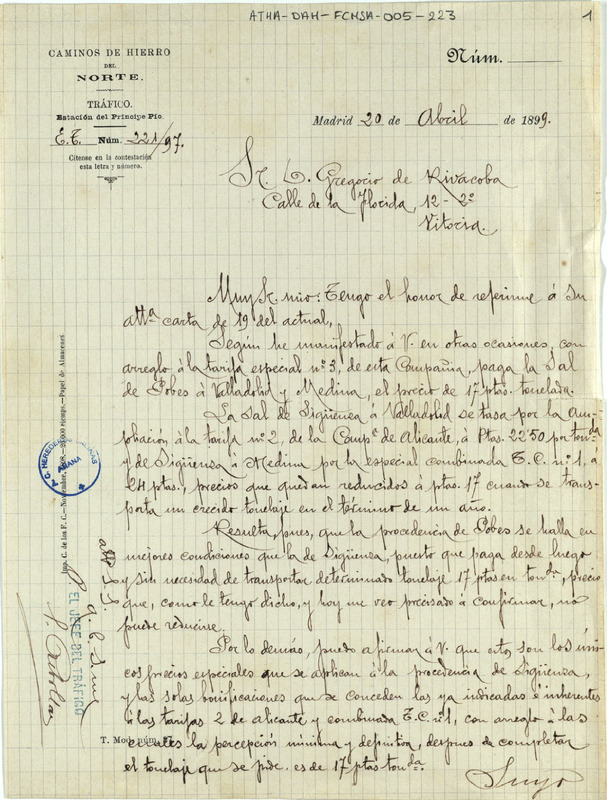 ATHA-DAH-FCMSA-005-223
1
CAMINOS DE HIERRO
DEL
NORTE.
TRÁFICO.
Estación del Príncipe Pío.
E.T. Núm. 221/97.
Cítense en la contestación
esta letra y número.
Núm.
Madrid 20 de Abril de 1899.
Sr. D. Gregorio de Rivacoba
Calle de la Florida, 12-2º
Vitoria.
Muy Sr. mio: Tengo el honor de referirme á su
attª carta de 19 del actual,
Según he manifestado á V. en otras ocasiones, con
arreglo á la tarifa especial nº 3, de esta Compañia, paga la Sal
de Pobes á Valladolid y Medina, el precio de 17 ptas. tonelada.
La Sal de Sigüenza á Valladolid se tasa por la am-
pliación á la tarifa nº 2, de la Campª de Alicante, á Ptas. 22'50 por tonda
y de Sigüenza á Medina por la especial combinada E.C. nº 1, á
24 ptas., precios que quedan reducidos á ptas. 17 cuando se trans-
porta un crecido tonelaje en el término de un año.
Resulta, pues, que la procedencia de Pobes se halla en
mejores condiciones que la de Sigüenza, puesto que paga desde luego
y sin necesidad de transportar determinado tonelaje 17 ptas en tonda, precio
que, como le tengo dicho, y hoy me veo precisado á confirmar, no
puede reducirse.
Por lo demás, puedo afirmar á V. que estos son los úni-
cos precios especiales que se aplican á la procedencia de Sigüenza,
y las solas bonificaciones que se conceden las ya indicadas é inherentes
á las tarifas 2 de alicante y combinada E.C. nº 1, con arreglo á las
cuales la percepción mínima y definitiva, despues de completar
el tonelaje que se pide es de 17 ptas tonda.
Suyo
T. Mod. núm.
Imp. C. de los F. C.—Noviembre, 1898.— ejemp.—Papel de Almacenes
J. G. HEREDEROS
AÑANA
attº S.S.
q. b. s. m.
EL JEFE DEL TRÁFICO